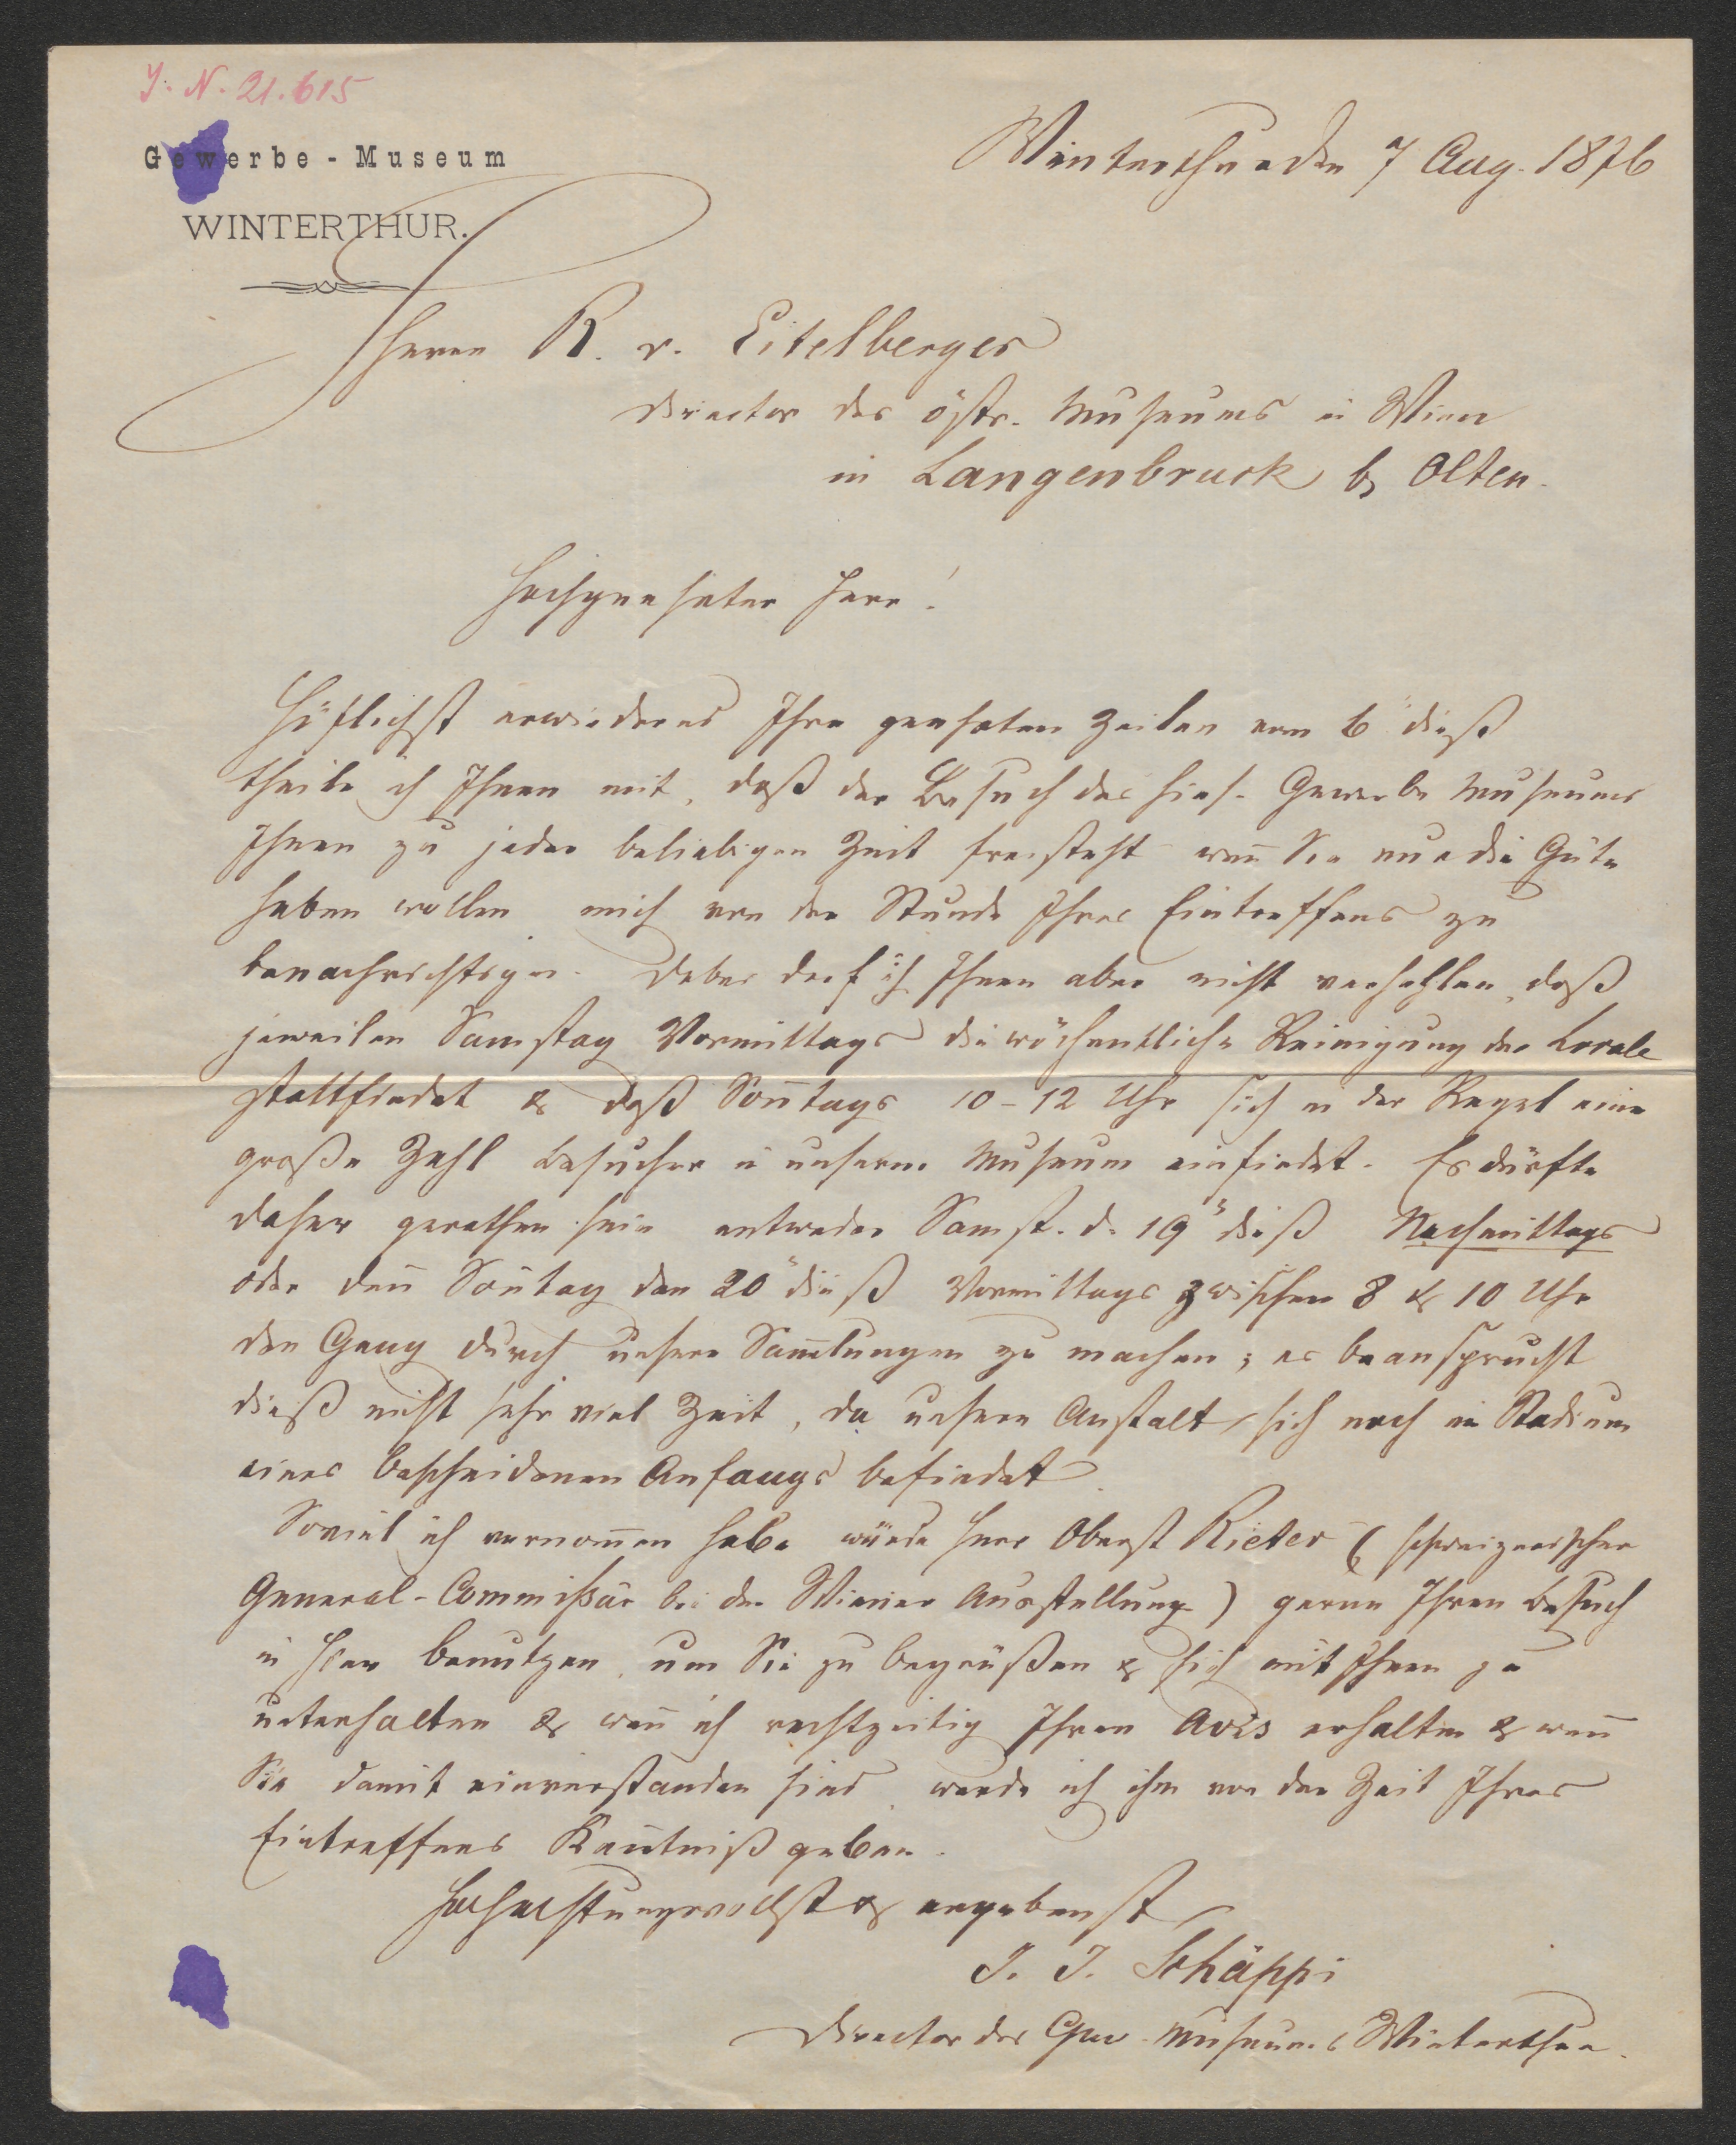 J. N. 21.615
Gewerbe-Museum
WINTERTHUR.
Winterthur den 7 Aug. 1876
Herrn R. v. Eitelberger
Director des östr. Museums in Wien
in Langenbruck b/ Olten.
Hochgeehrter Herr!
Höflichst erwiedernd Ihre geehrten Zeilen vom 6 dieß
theile ich Ihnen mit, daß der Besuch des hies. Gewerbe Museums
Ihnen zu jeder beliebigen Zeit freisteht weñ Sie nur die Güte
haben wollen mich von der Stunde Ihres Eintreffens zu
benachrichtigen. Dabei darf ich Ihnen aber nicht verhehlen, daß
jeweilen Samstag Vormittags die wöchentliche Reinigung der Locale
stattfindet & daß Soñtags 10–12 Uhr sich in der Regel eine
große Zahl Besucher in unserem Museum einfindet. Es dürfte
daher gerathen sein entweder Samst. d. 19 dieß Nachmittags
oder dañ Soñtag den 20 dieß Vormittags zwischen 8 & 10 Uhr
den Gang durch unsere Sam̄lungen zu machen; es beansprucht
dieß nicht sehr viel Zeit, da unsere Anstalt sich noch im Stadium
eines bescheidenen Anfangs befindet.
Soviel ich vernom̄en habe würde Herr Oberst Rieter (schweizerischer
General-Commissär bei der Wiener Ausstellung) gerne Ihren Besuch
in hier benutzen, um Sie zu begrüßen & sich mit Ihnen zu
unterhalten & weñ ich rechtzeitig Ihren Avis erhalten & weñ
Sie damit einverstanden sind, werde ich ihm von der Zeit Ihres
Eintreffens Keñtniß geben.
Hochachtungsvollst & ergebenst
J. J. Schäppi
Director des Gew. Museums Winterthur.